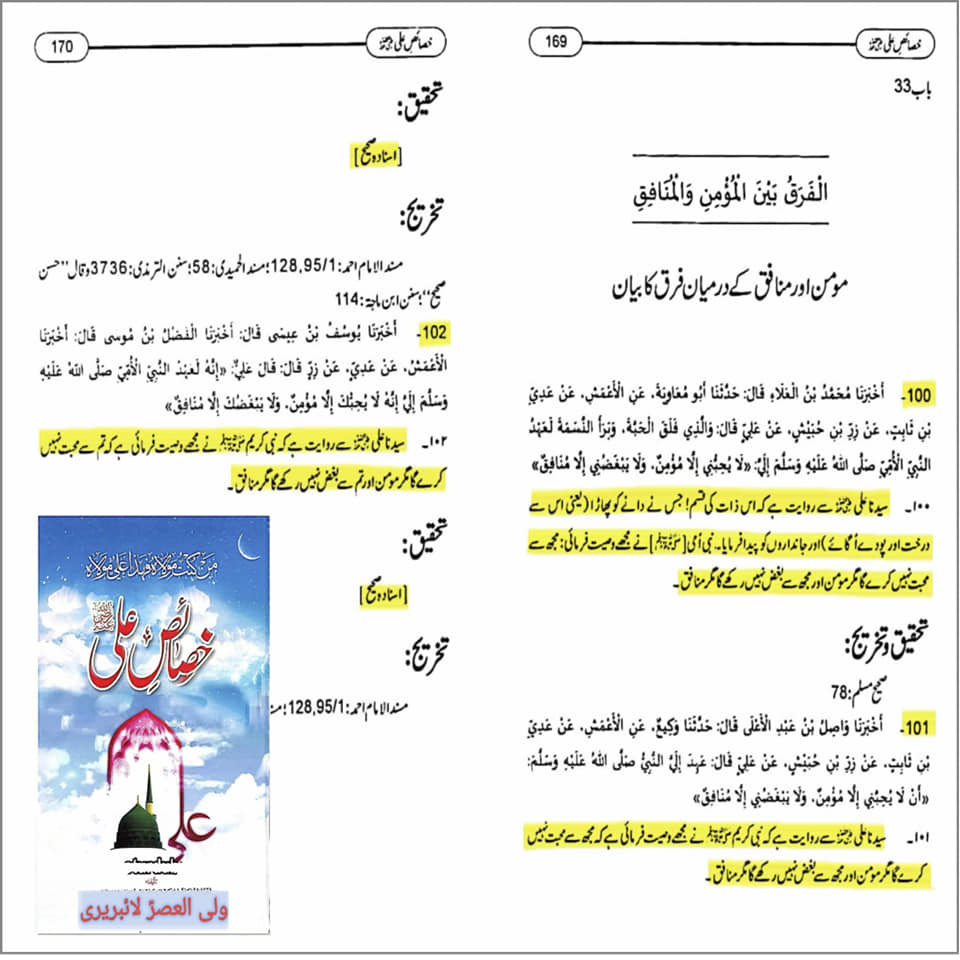 خصائصِ علی رضی اللہ عنہ 169
باب 33
الْفَرَقُ بَيْنَ الْمُؤْمِنِ وَالْمُنَافِقِ
مومن اور منافق کے درمیان فرق کا بیان
100۔ أَخْبَرَنَا مُحَمَّدُ بْنُ الْعَلَاءِ قَالَ: حَدَّثَنَا أَبُو مُعَاوِيَةَ، عَنِ الْأَعْمَشِ، عَنْ عَدِيِّ
بْنِ ثَابِتٍ، عَنْ زِرِّ بْنِ حُبَيْشٍ، عَنْ عَلِيٍّ قَالَ: وَالَّذِي فَلَقَ الْحَبَّةَ، وَبَرَأَ النَّسْمَةَ لَعَهْدُ
النَّبِيِّ الْأُمِّيِّ صَلَّى اللهُ عَلَيْهِ وَسَلَّمَ إِلَيَّ: «لَا يُحِبُّنِي إِلَّا مُؤْمِنٌ، وَلَا يَبْغَضُنِي إِلَّا مُنَافِقٌ»
۱۰۰۔ سیدنا علی رضی اللہ عنہ سے روایت ہے کہ اس ذات کی قسم! جس نے دانے کو پھاڑا (یعنی اس سے
درخت اور پودے اُگائے) اور جانداروں کو پیدا فرمایا۔ نبی اُمی [ﷺ] نے مجھے وصیت فرمائی: مجھ سے
محبت نہیں کرے گا مگر مومن اور مجھ سے بغض نہیں رکھے گا مگر منافق۔
تحقیق و تخریج:
صحیح مسلم: 78
101۔ أَخْبَرَنَا وَاصِلُ بْنُ عَبْدِ الْأَعْلَى قَالَ: حَدَّثَنَا وَكِيعٌ، عَنِ الْأَعْمَشِ، عَنْ عَدِيِّ
بْنِ ثَابِتٍ، عَنْ زِرِّ بْنِ حُبَيْشٍ، عَنْ عَلِيٍّ قَالَ: عَهِدَ إِلَيَّ النَّبِيُّ صَلَّى اللهُ عَلَيْهِ وَسَلَّمَ:
«أَنْ لَا يُحِبُّنِي إِلَّا مُؤْمِنٌ، وَلَا يَبْغَضُنِي إِلَّا مُنَافِقٌ»
۱۰۱۔ سیدنا علی رضی اللہ عنہ سے روایت ہے کہ نبی کریم ﷺ نے مجھے وصیت فرمائی ہے کہ مجھ سے محبت نہیں
کرے گا مگر مومن اور مجھ سے بغض نہیں رکھے گا مگر منافق۔
خصائصِ علی رضی اللہ عنہ 170
تحقیق:
[اسنادہ صحیح]
تخریج:
مسند الامام احمد: 128,95/1؛ مسند الحمیدی: 58؛ سنن الترمذی: 3736 وقال ”حسن
صحیح“؛ سنن ابن ماجۃ: 114
102۔ أَخْبَرَنَا يُوسُفُ بْنُ عِيسَى قَالَ: أَخْبَرَنَا الْفَضْلُ بْنُ مُوسَى قَالَ: أَخْبَرَنَا
الْأَعْمَشُ، عَنْ عَدِيٍّ، عَنْ زِرٍّ قَالَ: قَالَ عَلِيٌّ: «إِنَّهُ لَعَهْدُ النَّبِيِّ الْأُمِّيِّ صَلَّى اللهُ عَلَيْهِ
وَسَلَّمَ إِلَيَّ إِنَّهُ لَا يُحِبُّكَ إِلَّا مُؤْمِنٌ، وَلَا يَبْغَضُكَ إِلَّا مُنَافِقٌ»
۱۰۲۔ سیدنا علی رضی اللہ عنہ سے روایت ہے کہ نبی کریم ﷺ نے مجھے وصیت فرمائی ہے کہ تم سے محبت نہیں
کرے گا مگر مومن اور تم سے بغض نہیں رکھے گا مگر منافق۔
تحقیق:
[اسنادہ صحیح]
تخریج:
مسند الامام احمد: 128,95/1؛
من كنت مولاه فهذا علي مولاه
خصائصِ علی
علی
ولی العصرؑ لائبریری